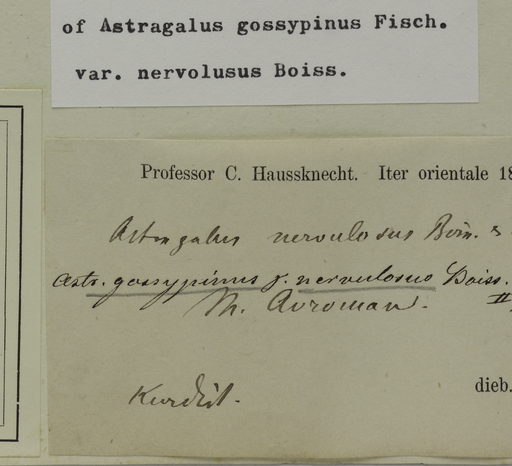 of Astragalus gossypinus Fisch.
var. nervolusus Boiss.
Professor C. Haussknecht. Iter orientale 18
Astragalus nervulosus Boiss. &
Astr. gossypinus γ. nervulosus Boiss.
M. Avroman. II
dieb.
Kurdist.